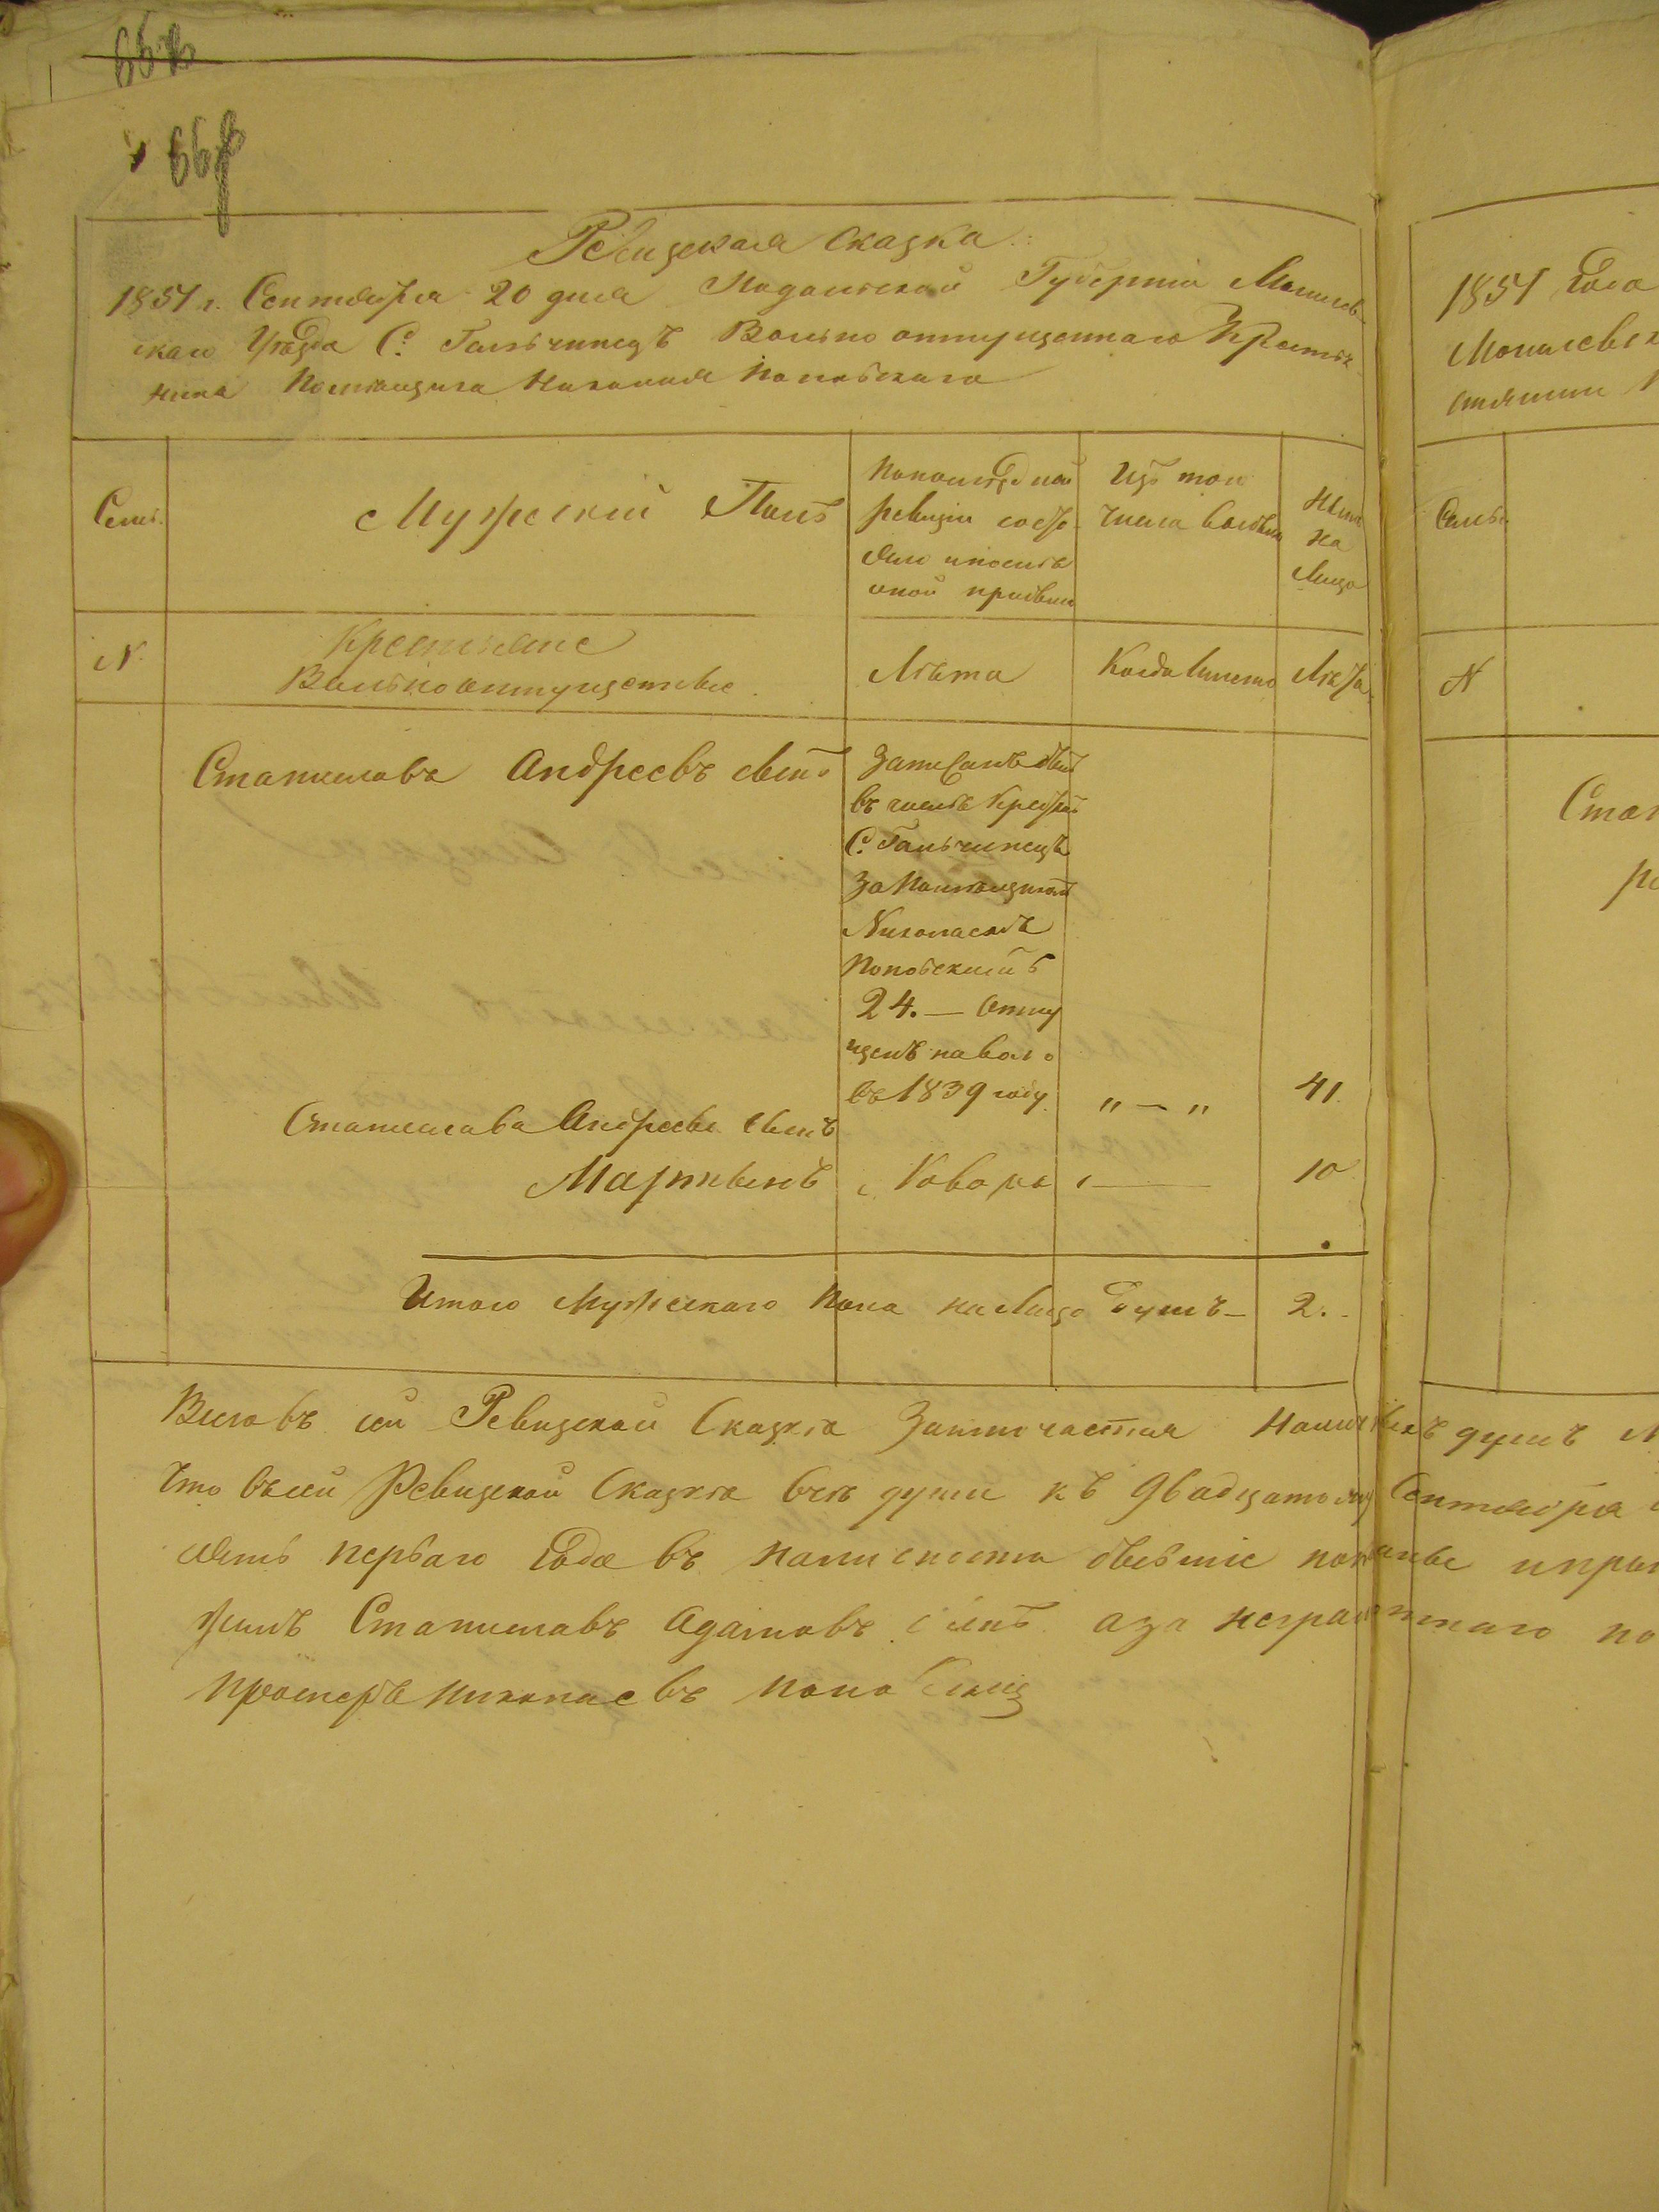 Ревизская Сказка
1851 г. Сентября 20 дня Подольской Губерніи Могилев-
скаго Уезда С. Гальчинецъ Вольно отпущеннаго Крестья-
нина Помещика Николая Поповскаго
1851 Года
Могилевск
Семья
Мужескій Полъ
По последней
ревизіи состо-
яло и после
оной прибыло
Изъ того
числа выбыло
Ныне
на
Лицо
Семья
N
Крестьяне
Вольноотпущенные
Лета
Когда именно
Лета
N
Станиславъ Андреевъ сынъ
Записанъ былъ
въ числе Крестьянъ
С. Гальчинецъ
За Помещикомъ
Николаемъ
Поповскимъ
24. — Отпу
щенъ на волю
въ 1839 году
" — "
41
Станислава Андреева сынъ
Мартынъ
Новоро
" —
10
Итого Мужескаго Пола на Лицо Душъ —
2.
Всего въ сей Ревизской Сказке Наличныхъ душъ
Что въ сей Ревизской Сказке все души къ двадцатому Сентября
сятъ перваго Года въ налицности бывшіе показаны и
Станиславъ Адамовъ сынъ а за неграмотнаго по
Николаевъ